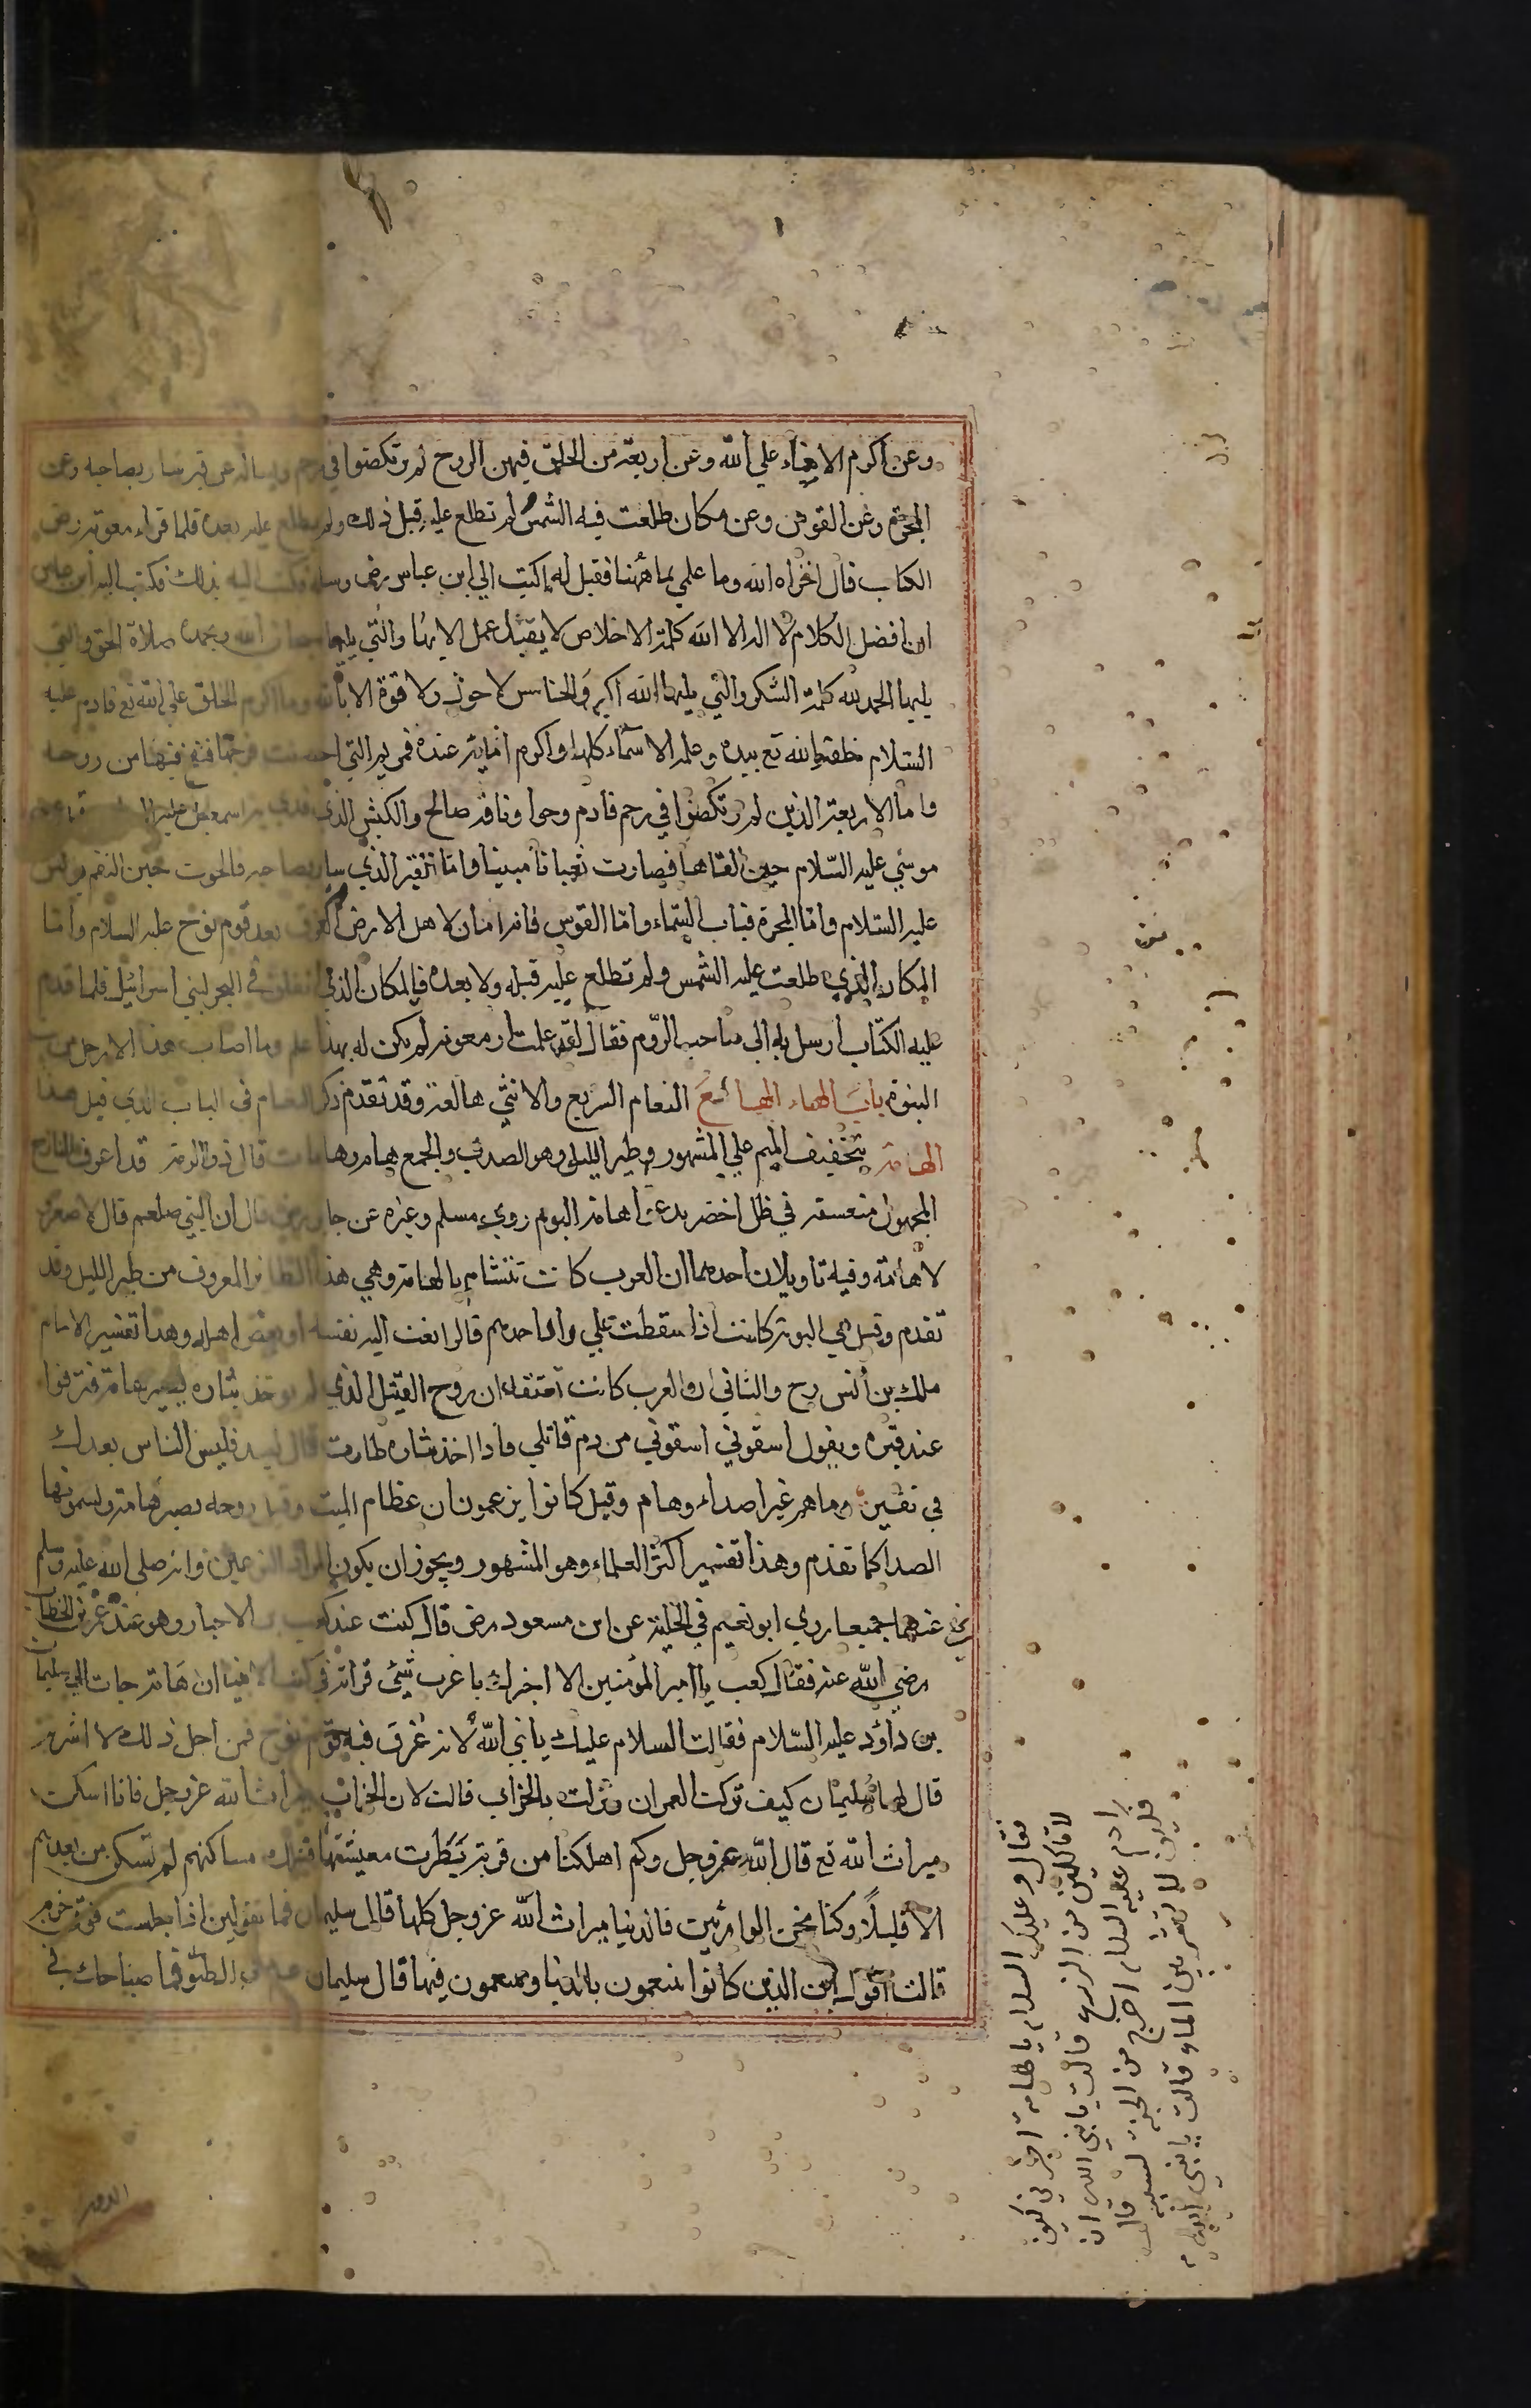 وعن اكرم الاغياء علي الله وعن اربعة من الخلق فيهن الروح لم يرتكضوا في رحم ويساله عن قبر سار بصاحبه وعن
المجرة وعن القوس وعن مكان طلعت فيه الشمس لم تطلع عليه قبل ذلك ولم تطلع عليه بعده فلما قراء معوية رضي
الكتاب قال اخزاه الله وما علمي بما ههنا فقيل له اكتب الي ابن عباس رض وسله فكتب اليه بذلك فكتب اليه ابن عباس
ان افضل الكلام لا اله الا الله كلمة الاخلاص لا يقبل عمل الا بها والتي يليها سبحان الله وبحمده صلاة الحق والتي
يليها الحمد لله كلمة الشكر والتي يليها الله اكبر والخامس لا حول ولا قوة الا بالله وما اكرم الخلق علي الله تع فادم عليه
السلام خلقه الله تع بيده وعلمه الاسماء كلها واكرم امائه عنده فمريم التي احصنت فرجها فنفخ فيها من روحه
واما الاربعة الذين لم يرتكضوا في رحم فادم وحوا وناقة صالح والكبش الذي فدي به اسمعيل عليه
موسي عليه السلام حين القاها فصارت ثعبانا مبينا واما القبر الذي سار بصاحبه فالحوت حين التقم يونس
عليه السلام واما المجرة فباب السماء واما القوس فانه امان لاهل الارض من الغرق بعد قوم نوح عليه السلام واما
المكان الذي طلعت عليه الشمس ولم تطلع عليه قبله ولا بعده فالمكان الذي انفلق في البحر لبني اسرائيل فلما قدم
عليه الكتاب ارسل به الى صاحب الروم فقال لقد علمت ان معوية لم يكن له بهذا علم وما اصاب هذا الا رجل من بيت
النبوة باب الهاء الهالع النعام السريع والانثي هالعة وقد تقدم ذكر النعام في الباب الذي قبل هذا
الهامة بتخفيف الميم علي المشهور وطير الليل وهو الصدي والجمع هام وهامات قال ذو الرمة قد اعسف النازح
المجهول معسفه في ظل اخضر يدعو هامه البوم روي مسلم وغيره عن جابر رضي قال ان النبي صلعم قال لا صفر و
لا هامة وفيه تاويلان احدهما ان العرب كانت تتشام بالهامة وهي هذا الطائر المعروف من طير الليل وقد
تقدم وقيل هي البومة كانت اذا سقطت علي دار احدهم قالوا نعت اليه نفسه او بعض اهله وهذا تفسير الامام
ملك بن انس رح والثاني ان العرب كانت تعتقد ان روح القتيل الذي لم يوخذ بثاره يصير هامة فتزقوا
عند قبره ويقول اسقوني اسقوني من دم قاتلي فاذا اخذ بثاره طارت قال لبيد فليس الناس بعدك
في نقير وما هم غير اصداء وهام وقيل كانوا يزعمون ان عظام الميت وقيل روحه يصير هامة ويسمونها
الصدا كما تقدم وهذا تفسير اكثر العلماء وهو المشهور ويجوز ان يكون المراد النوعين وانه صلي الله عليه وسلم
نهى عنهما جميعا روي ابو نعيم في الحلية عن ابن مسعود رض قال كنت عند كعب الاحبار وهو عند عمر بن الخطاب
رضي الله عنه فقال كعب يا امير المؤمنين الا اخبرك باغرب شئ قراته في كتب الانبيا ان هامة جات الي سليمان
بن داؤد عليه السلام فقالت السلام عليك يا نبي الله لانه غرق فيه قوم نوح فمن اجل ذلك لا اشربه
قال لها سليمان كيف تركت العمران ونزلت بالخراب قالت لان الخراب ميراث الله عز وجل فانا اسكن
ميراث الله تع قال الله عز وجل وكم اهلكنا من قرية بطرت معيشتها فتلك مساكنهم لم تسكن من بعدهم
الا قليلا وكنا نحن الوارثين فالدنيا ميراث الله عز وجل كلها قال سليمان فما تقولين اذا جلست فوق خربة
قالت اقول اين الذين كانوا يتنعمون بالدنيا ويتنعمون فيها قال سليمان فما صياحك في
الدور
فقال وعليك السلام يا هامة اخبريني كيف
لا تاكلين من الزرع قالت يا نبي الله ان
ادم عليه السلام اخرج من الجنة بسببه قال
فكيف لا تشربين الماء قالت يا نبي الله